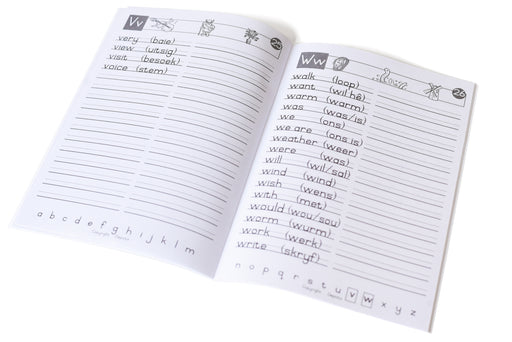 Vv
25
very (baie)
view (uitsig)
visit (besoek)
voice (stem)
a b c d e f g h i j k l m
Ww
26
walk (loop)
want (wil hê)
warm (warm)
was (was/is)
we (ons)
we are (ons is)
weather (weer)
were (was)
will (wil/sal)
wind (wind)
wish (wens)
with (met)
would (wou/sou)
worm (wurm)
work (werk)
write (skryf)
n o p q r s t u v w x y z